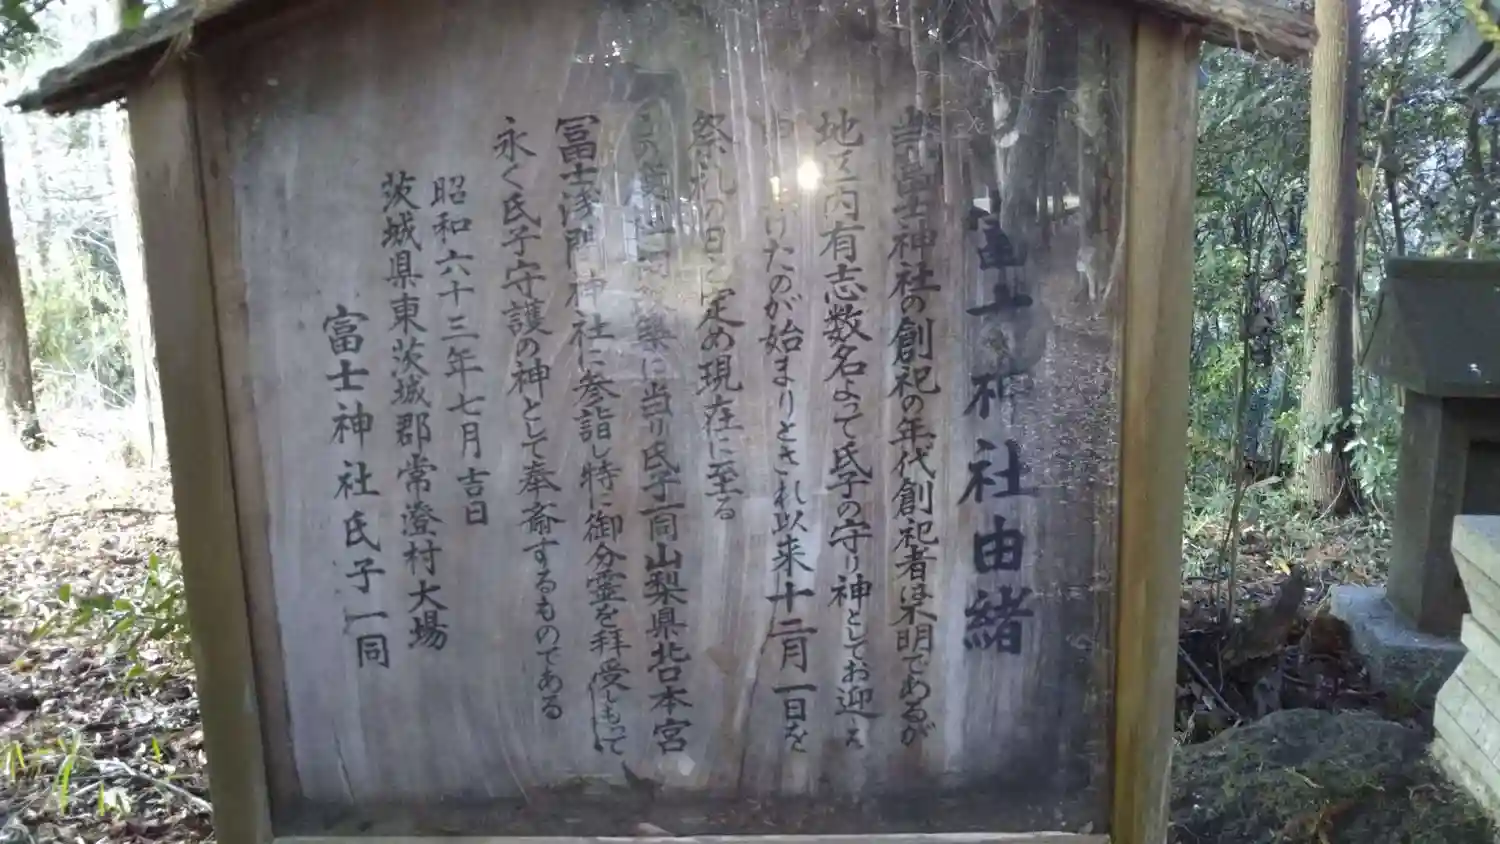 富士神社由緒
当富士神社の創祀の年代創祀者は不明であるが
地区内有志数名よって氏子の守り神としてお迎え
けたのが始まりとされ以来十二月一日を
祭礼の日と定め現在に至る
この に当り氏子一同山梨県北口本宮
冨士浅間神社に参詣し特に御分霊を拝受しもって
永く氏子守護の神として奉斎するものである
昭和六十三年七月吉日
茨城県東茨城郡常澄村大場
富士神社氏子一同